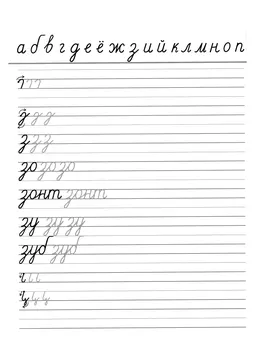 а б в г д е ё ж з и й к л м н о п
з з з
зо зо зо
зонт зонт
зу зу зу
зуб зуб